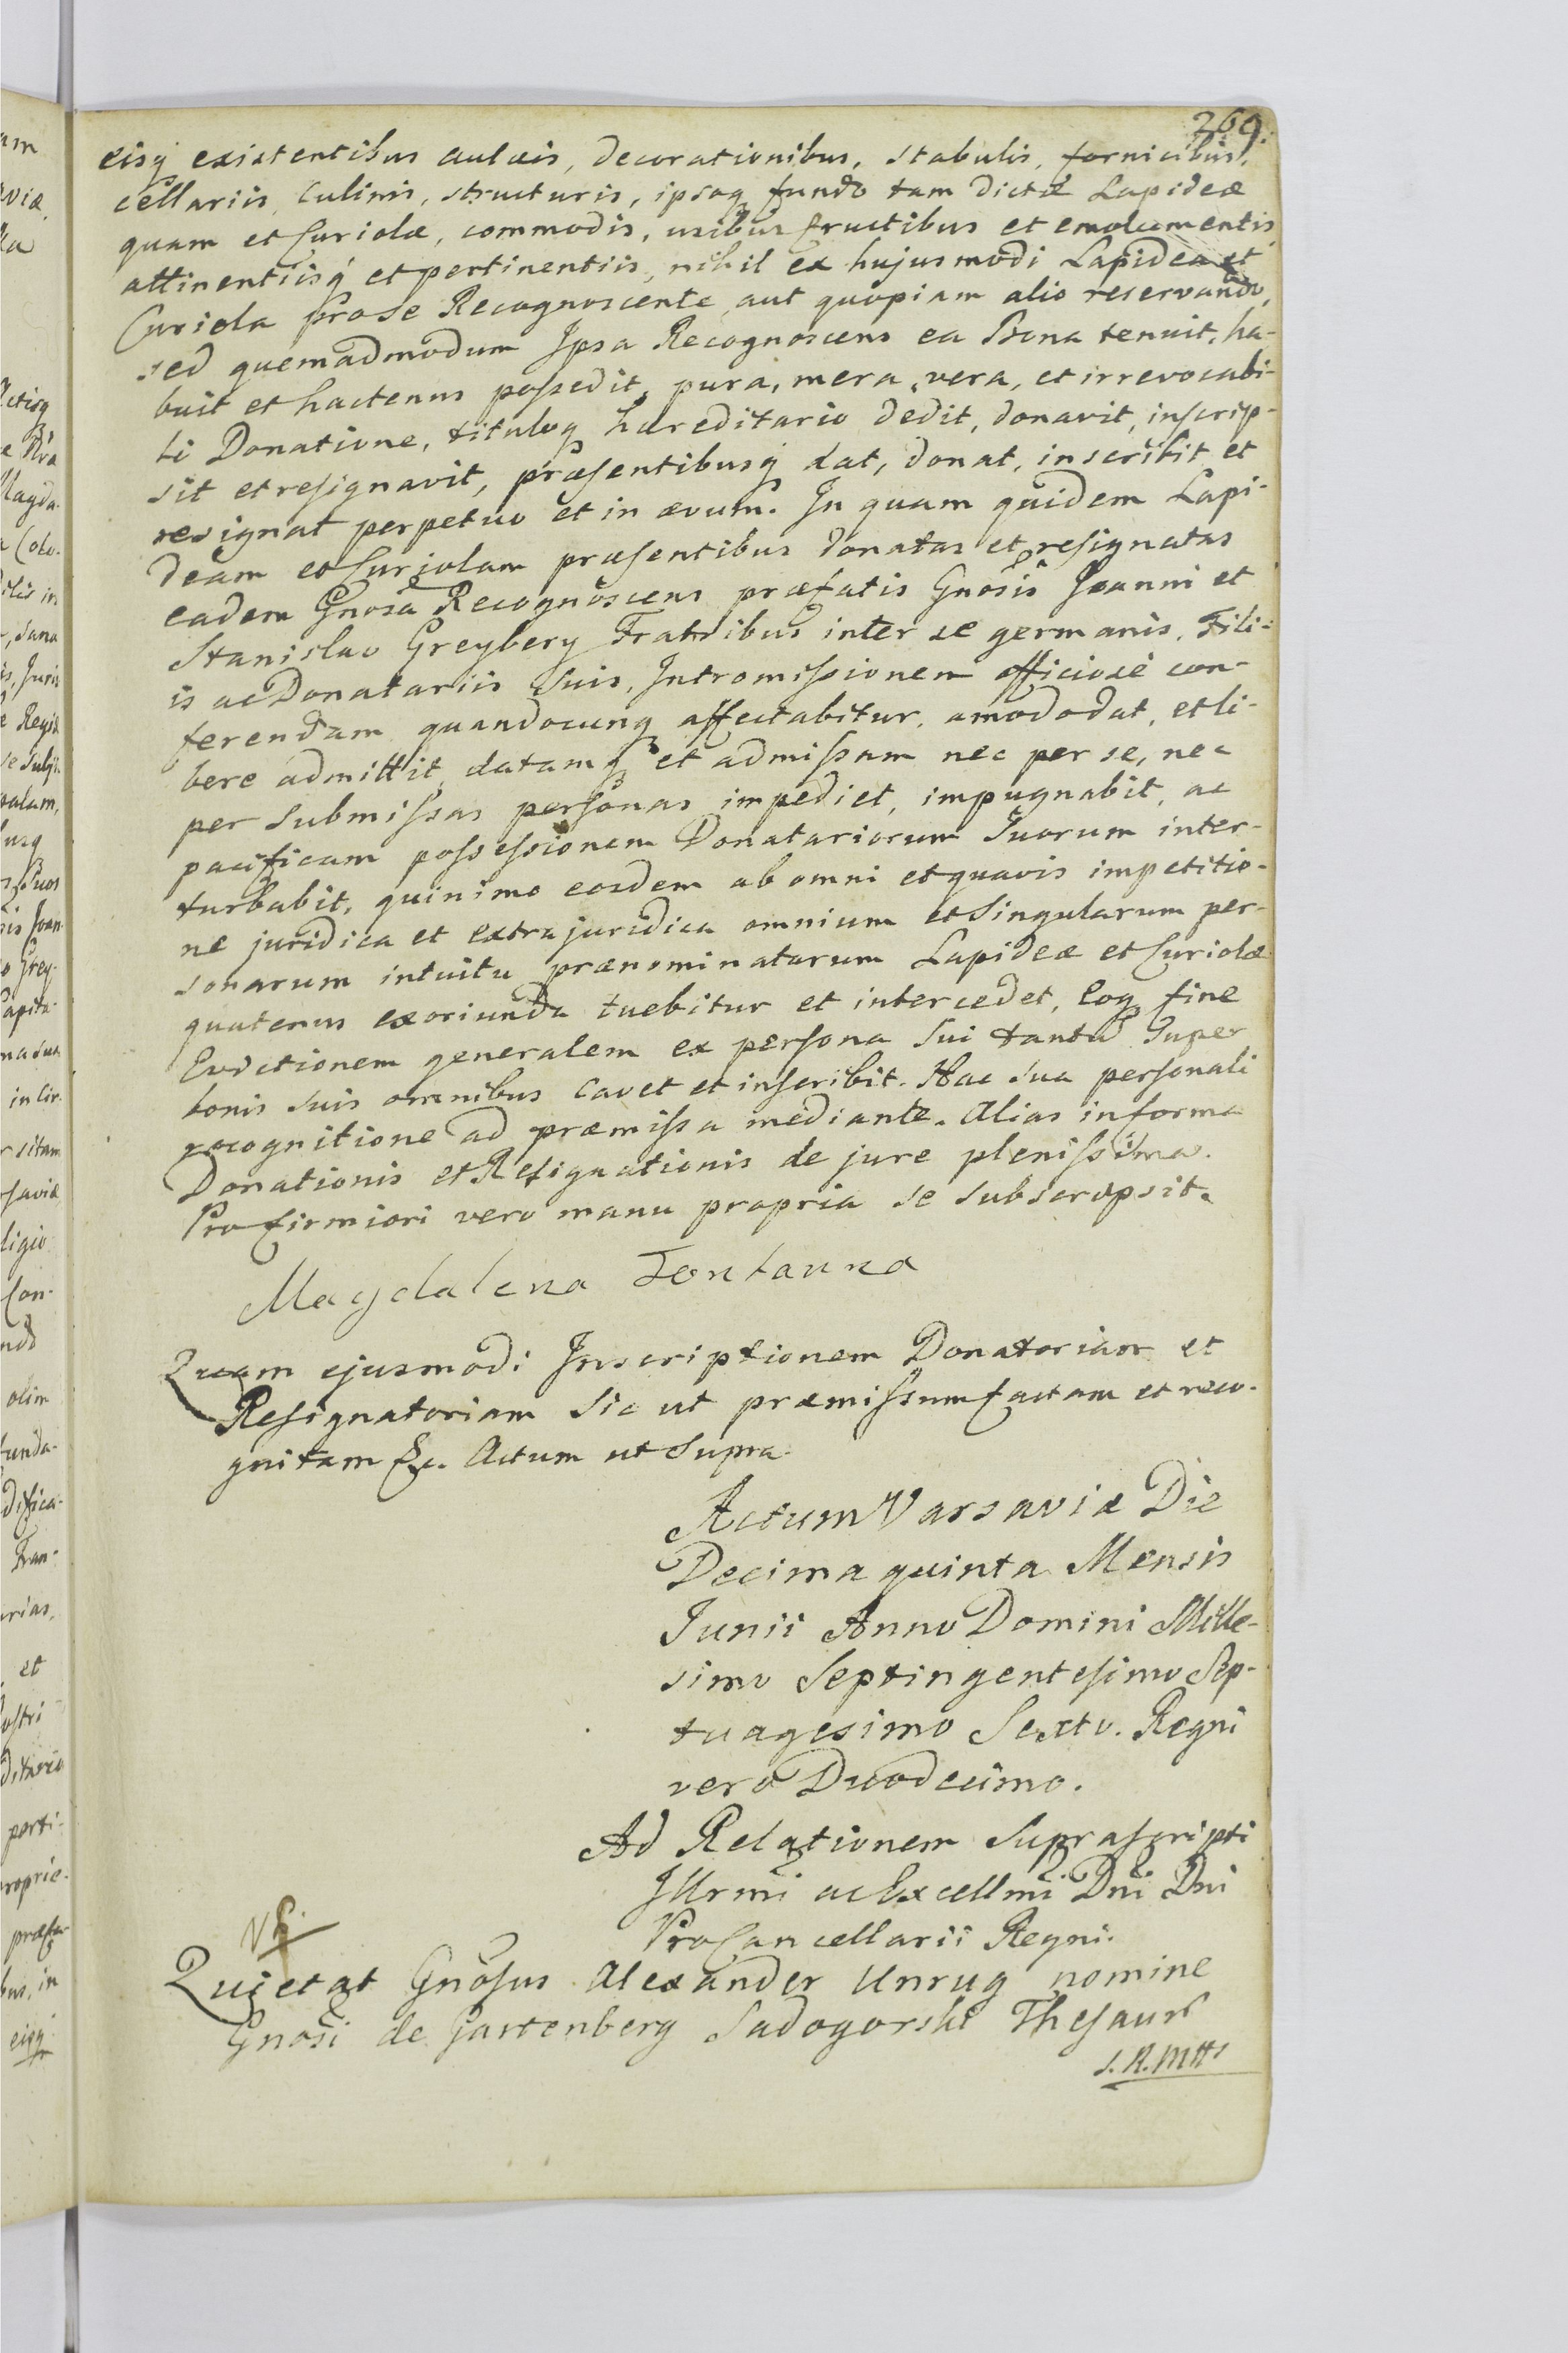 269.
eisq existentibus aulæis, decorationibus, stabulis, fornicibus,
cellariis, culinis, structuris, ipsoq fundo tam dictæ Lapideæ
quam et Curiolæ, commodis, usibus fructibus et emolumentis
attinentiisq et pertinentiis, nihil ex hujusmodi Lapidea et
Curiola pro se Recognoscente, aut quopiam alio reservando,
sed quemadmodum Ipsa Recognoscens ea Bona tenuit, ha-
buit et hactenus possedit, pura, mera, vera, et irrevocabi-
li Donatione, tituloq hæreditario dedit, donavit, inscrip-
sit et resignavit, præsentibusq dat, donat, inscribit et
resignat perpetuo et in ævum. In quam quidem Lapi-
deam et Curiolam præsentibus donatas et resignatas
eadem Gnosa Recognoscens præfatis Gnosis Joanni et
Stanislao Greybery Fratribus inter se germanis, Fili-
is ac Donatariis suis, Intromissionem officiose con-
ferendam quandocunq affectabitur, amodo dat, et li-
bere admittit, datamq et admissam nec per se, nec
per submissas personas impediet, impugnabit, ac
pacificam possessionem Donatariorum suorum inter-
turbabit, quinimo eosdem ab omni et quavis impetitio-
ne juridica et extrajuridica omnium et singularum per-
sonarum intuitu prænominatarum Lapideæ et Curiolæ
quatenus exoriunda tuebitur et intercedet, Eoq fine
Evictionem generalem ex persona sui tantu super
bonis suis omnibus cavet et inscribit. Hac sua personali
recognitione ad præmissa mediante. Alias in forma
Donationis et Resignationis de jure plenissima.
Pro firmiori vero manu propria se subscripsit.
Magdalena Fontanna
Quam ejusmodi Inscriptionem Donatoriam et
Resignatoriam sic ut præmissum factam et reco-
gnitam &c. Actum ut supra.
Actum Varsaviæ Die
Decima quinta Mensis
Junii Anno Domini Mille-
simo Septingentesimo Sep-
tuagesimo Sexto. Regni
vero Duodecimo.
Ad Relationem Suprascripti
Illrmi ac Excellmi Dni Dni
ProCancellarii Regni.
Quietat Gnosus Alexander Unrug nomine
Gnosi de Gartenberg Sadogorski Thesaur
S. R. Mtts